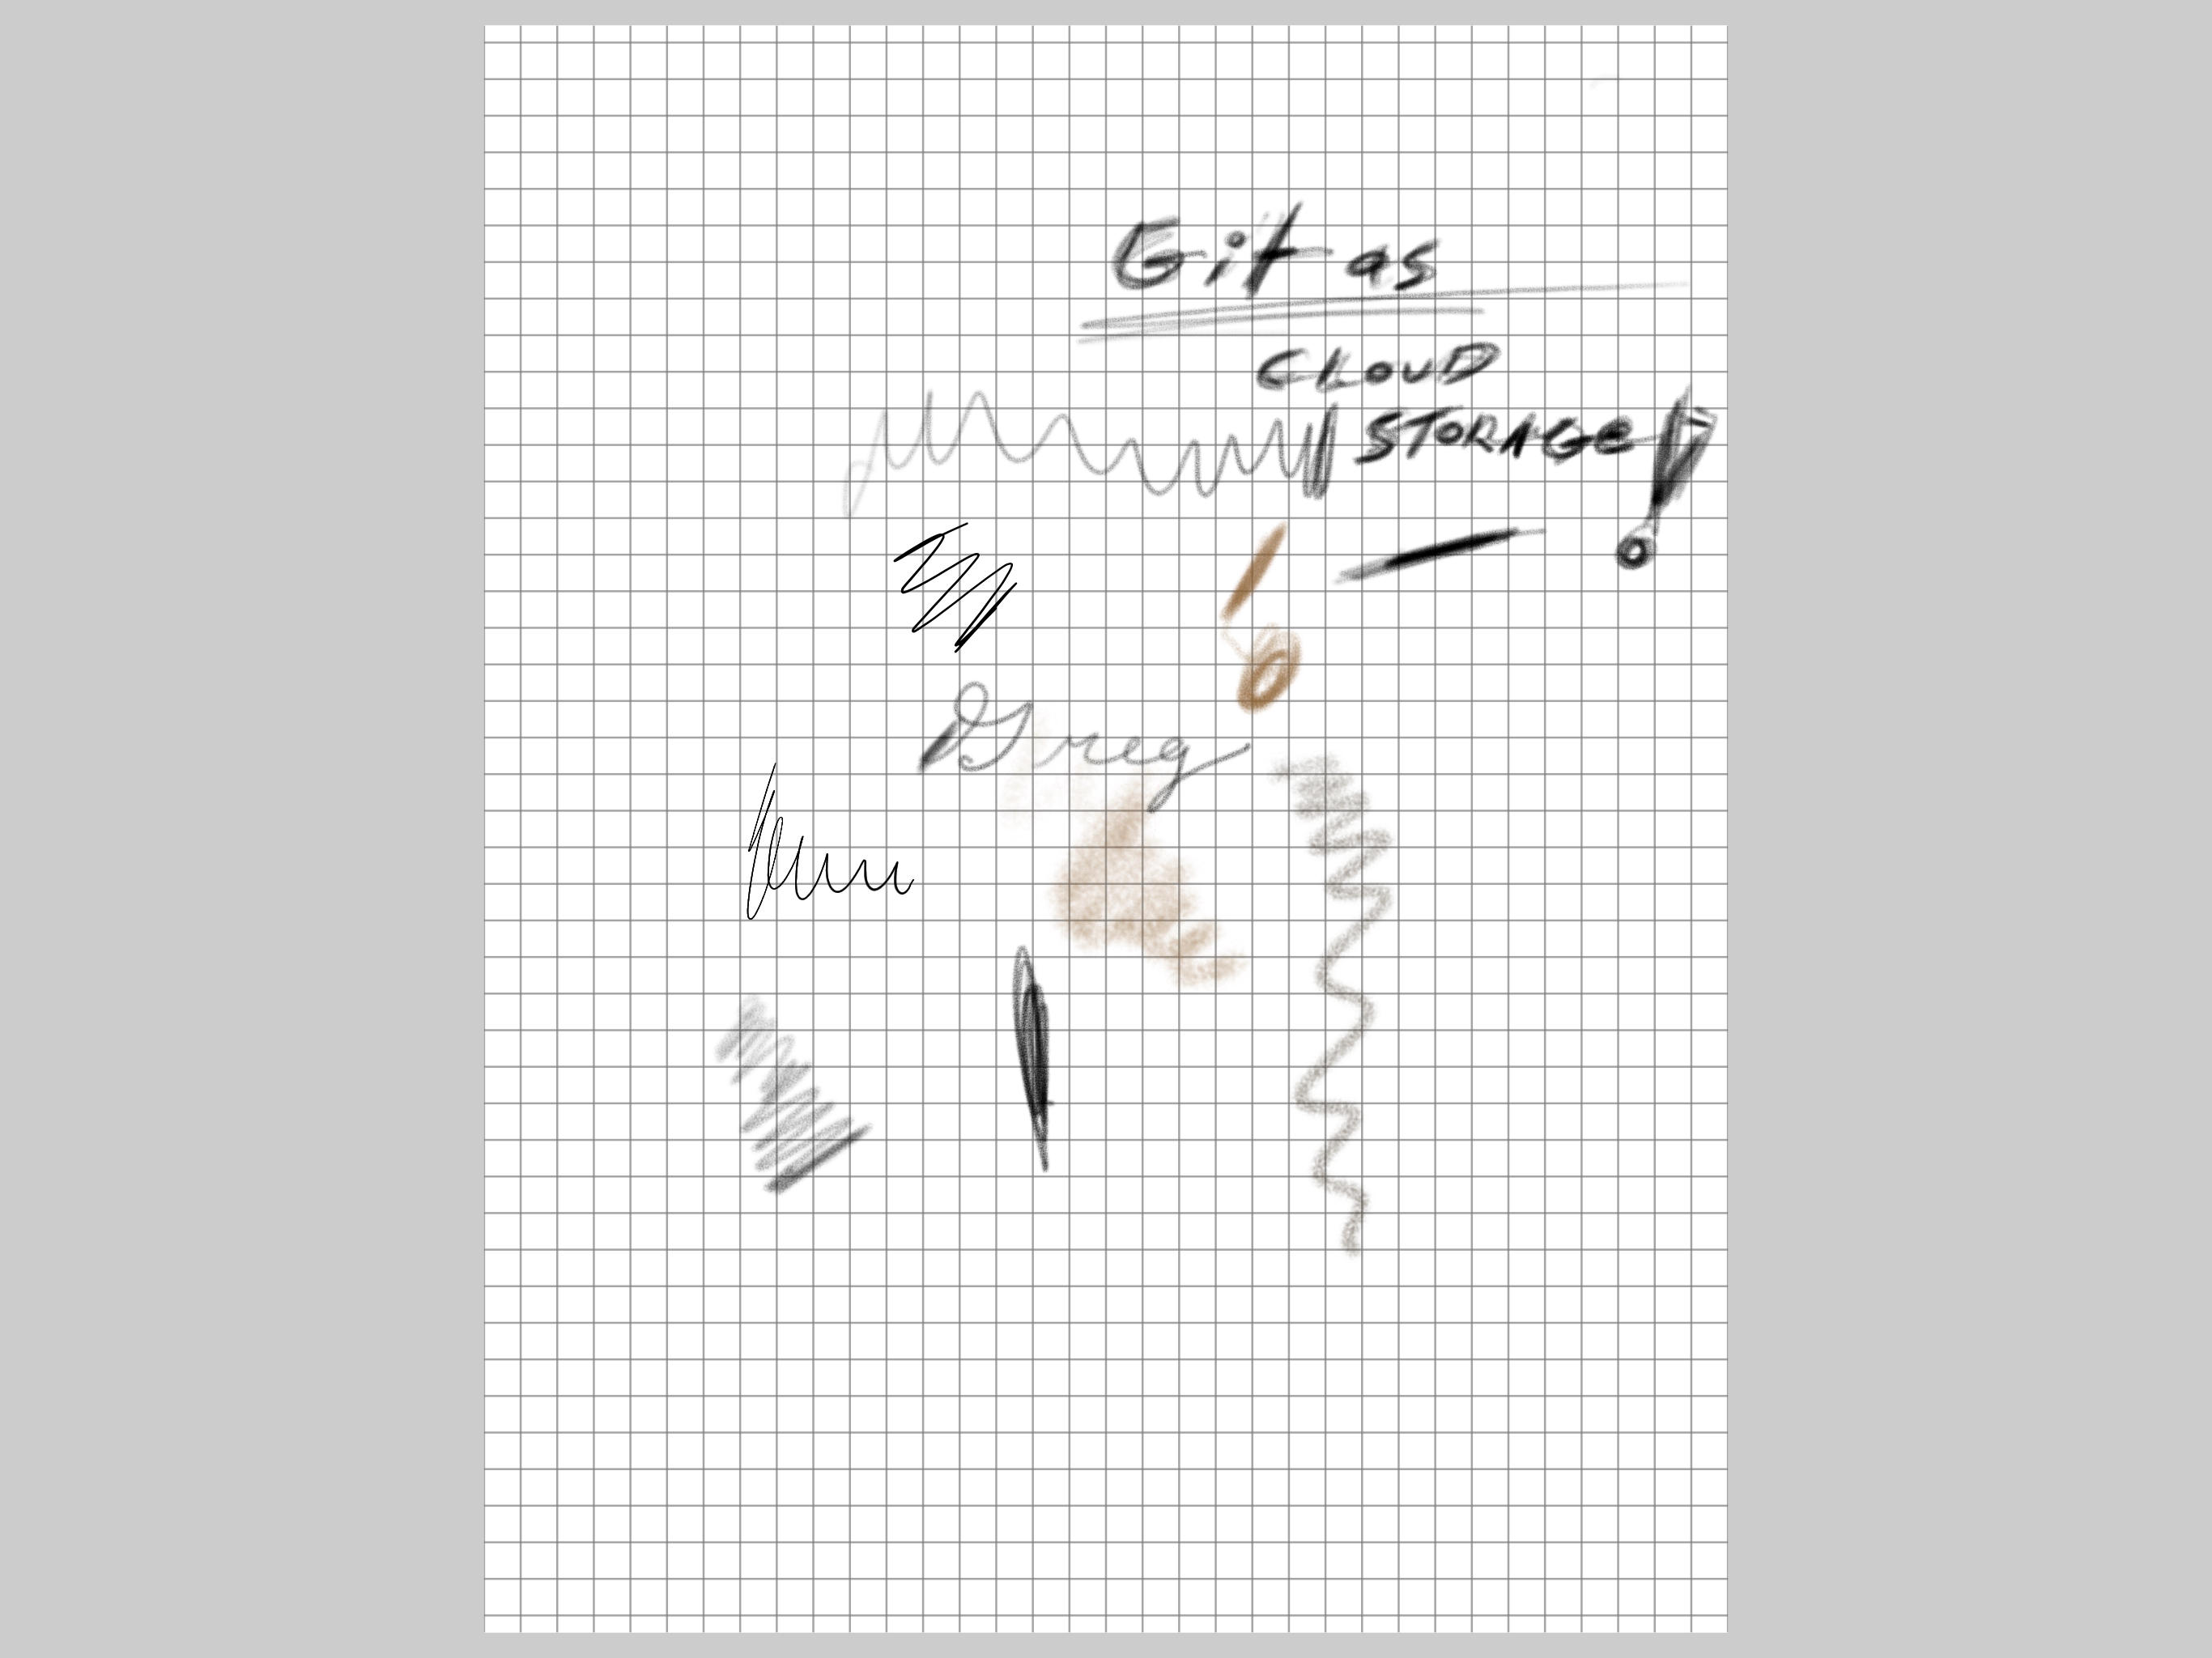 Git as
CLOUD
STORAGE!
Greg